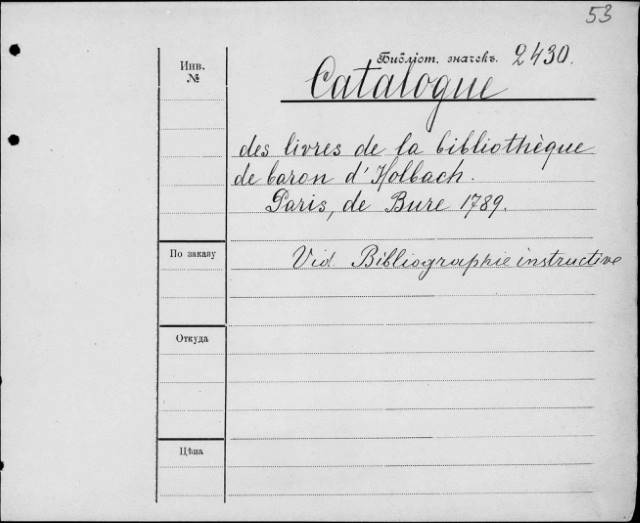 53
Библіот. значекъ. 2430.
Инв.
№
Catalogue
des livres de la bibliothèque
de baron d'Holbach.
Paris, de Bure 1789.
По заказу
Vid. Bibliographie instructive
Откуда
Цѣна